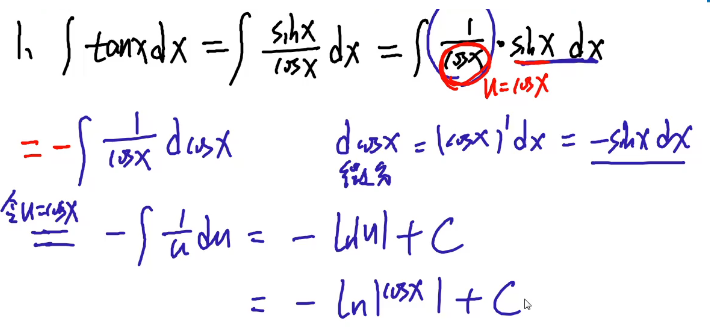 1. ∫ tanx dx = ∫ sinx/cosx dx = ∫ (1/cosx) · sinx dx
u=cosx
= -∫ 1/cosx dcosx
dcosx = (cosx)' dx = -sinx dx
令u=cosx
= -∫ 1/u du = -ln|u| + C
= -ln|cosx| + C